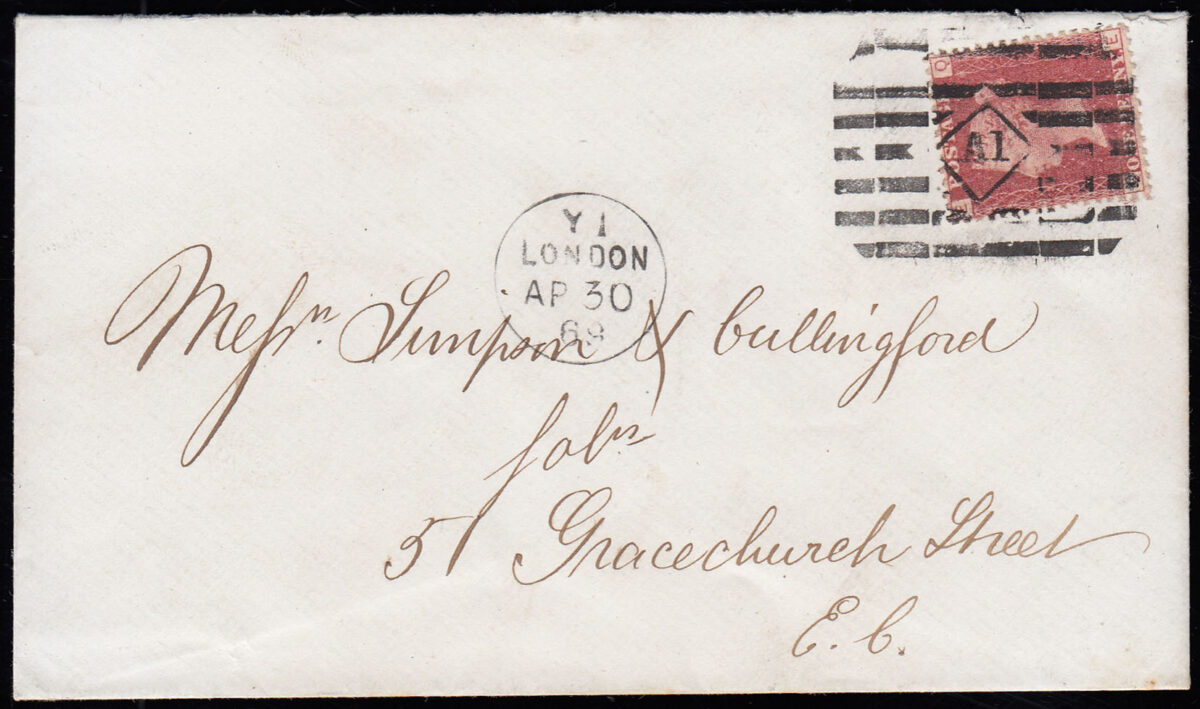 Q E
POSTAGE
ONE PENNY
E
A1
Y 1
LONDON
AP 30
69
Messrs Simpson & Cullingford
Solrs
51 Gracechurch Street
E. C.